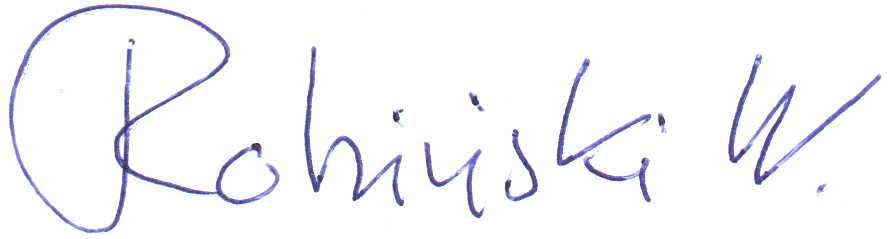 Robiński W.